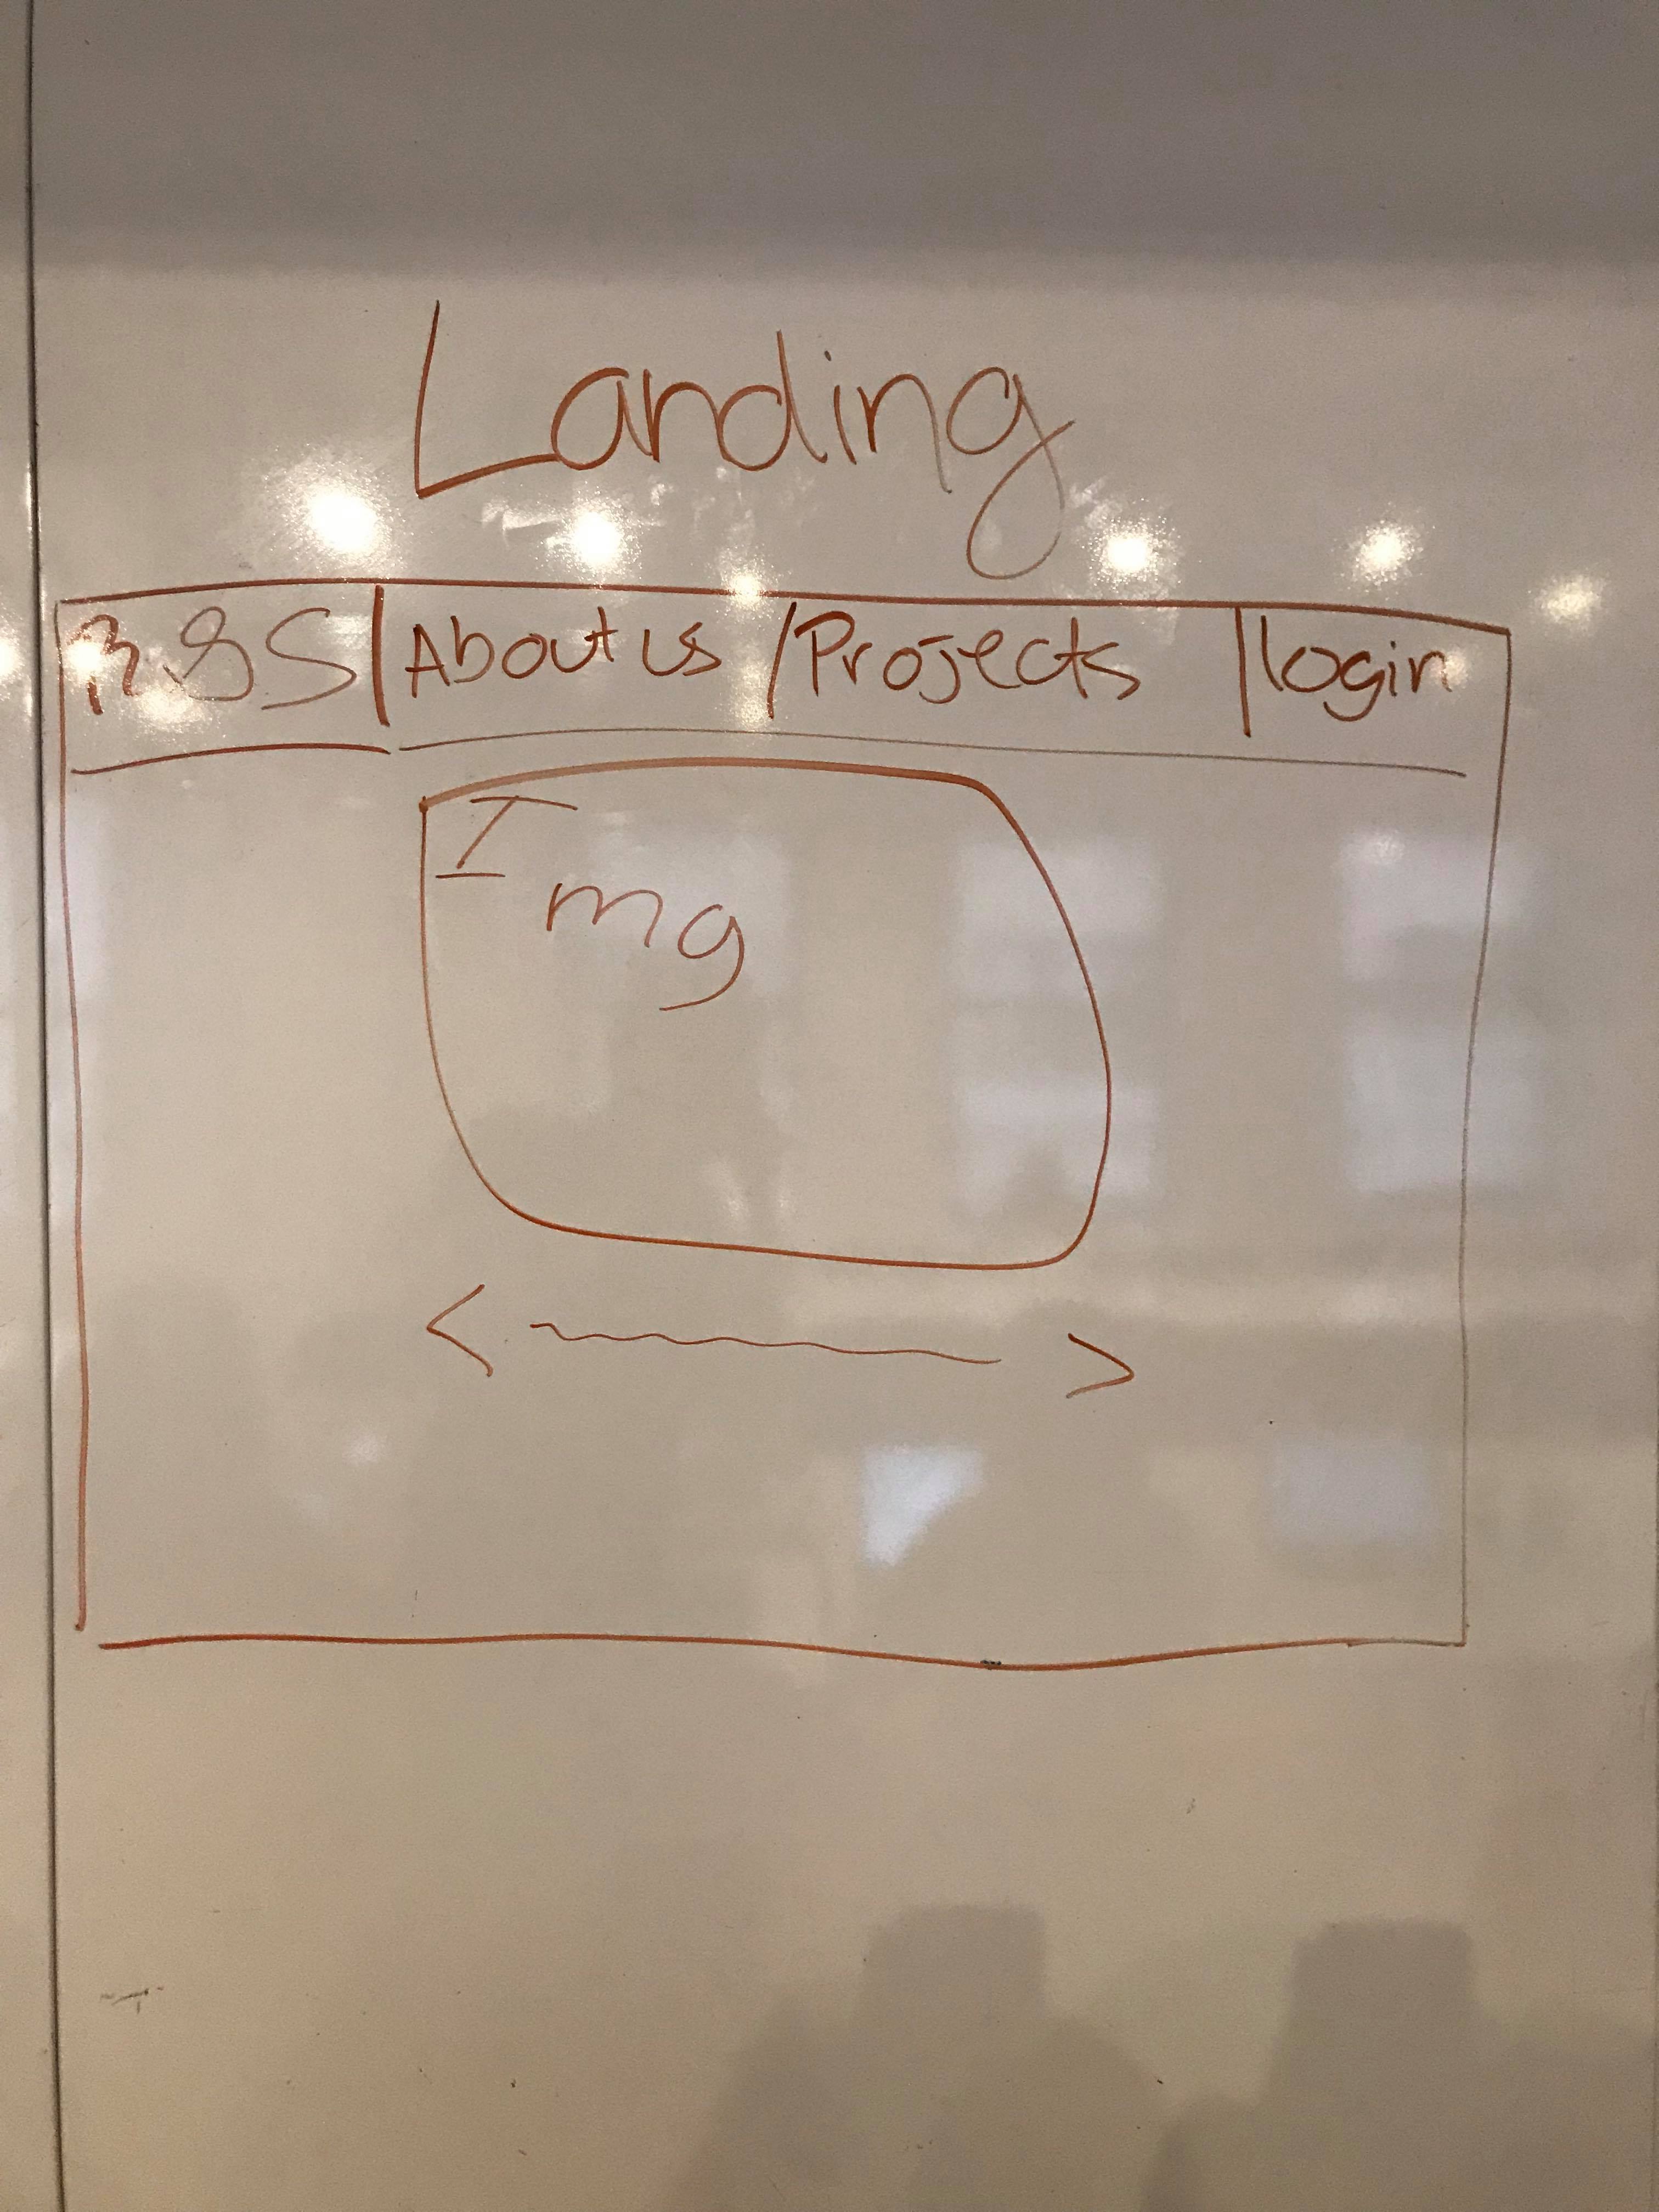 Landing
|About us /Projects |login
Img